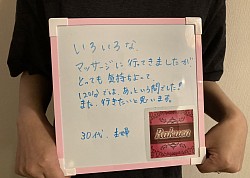 いろいろな
マッサージに行てきましたが
とっても気持ちよくて
120分では、あっという間でした!
また、行きたいと思います。
30代、主婦
Rakuea